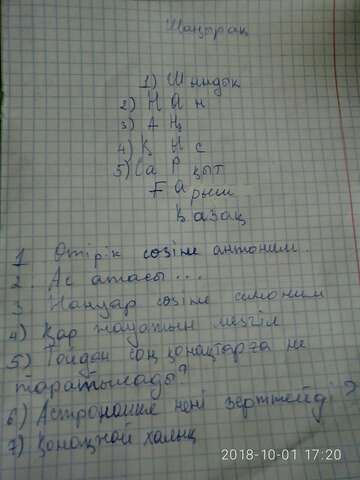 Шаңырақ
1) Шындық
2) НАн
3) АҢ
4) ҚЫс
5) СаРқыт
ҒАрыш
Қазақ
1 Өтірік сөзіне антоним.
2. Ас атасы ...
3 Жануар сөзіне синоним
4) Қар жауатын мезгіл
5) Тойдан соң қонақтарға не
таратылады?
6) Астрономия нені зерттейді?
7) Қонақжай халық
2018-10-01 17:20